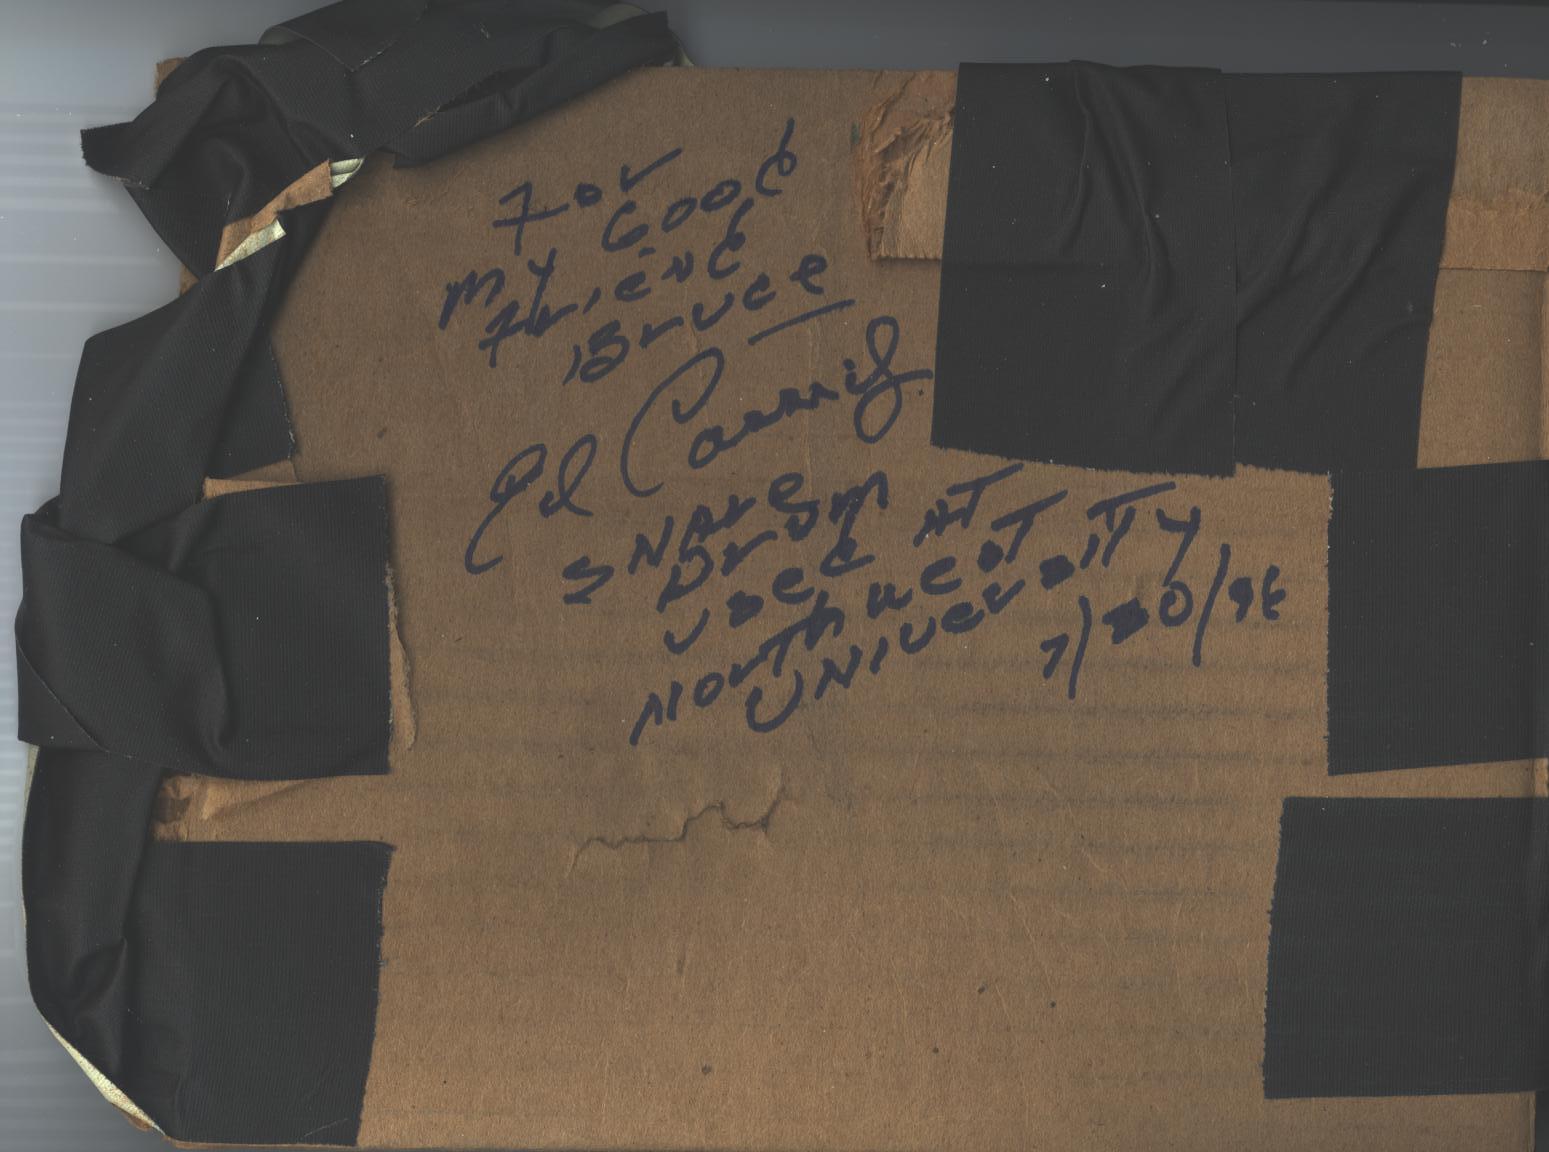 For
my Good
Friend
Bruce
Ed Cassidy
SNAre
Drum
used AT
NorthwesT
UNIVersITY
7/20/96